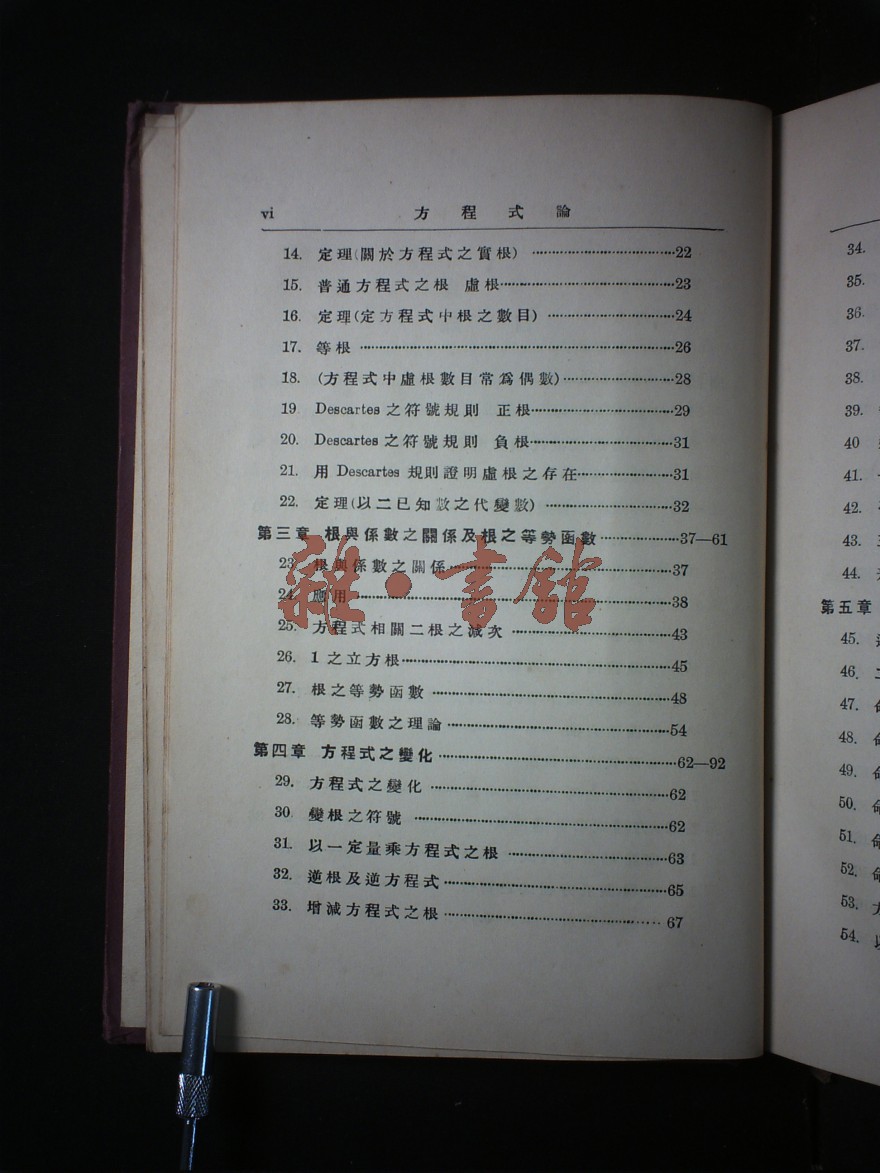 vi 方程式論
14. 定理(關於方程式之實根) 22
15. 普通方程式之根 虛根 23
16. 定理(定方程式中根之數目) 24
17. 等根 26
18. (方程式中虛根數目常爲偶數) 28
19 Descartes 之符號規則 正根 29
20. Descartes 之符號規則 負根 31
21. 用 Descartes 規則證明虛根之存在 31
22. 定理(以二已知數之代變數) 32
第三章 根與係數之關係及根之等勢函數 37—61
23. 根與係數之關係 37
24. 應用 38
25. 方程式相關二根之減次 43
26. 1 之立方根 45
27. 根之等勢函數 48
28. 等勢函數之理論 54
第四章 方程式之變化 62—92
29. 方程式之變化 62
30 變根之符號 62
31. 以一定量乘方程式之根 63
32. 逆根及逆方程式 65
33. 增減方程式之根 67
雜·書館
34.
35.
36.
37.
38.
39.
40
41.
42.
43.
44.
第五章
45.
46.
47.
48.
49.
50.
51.
52.
53.
54.